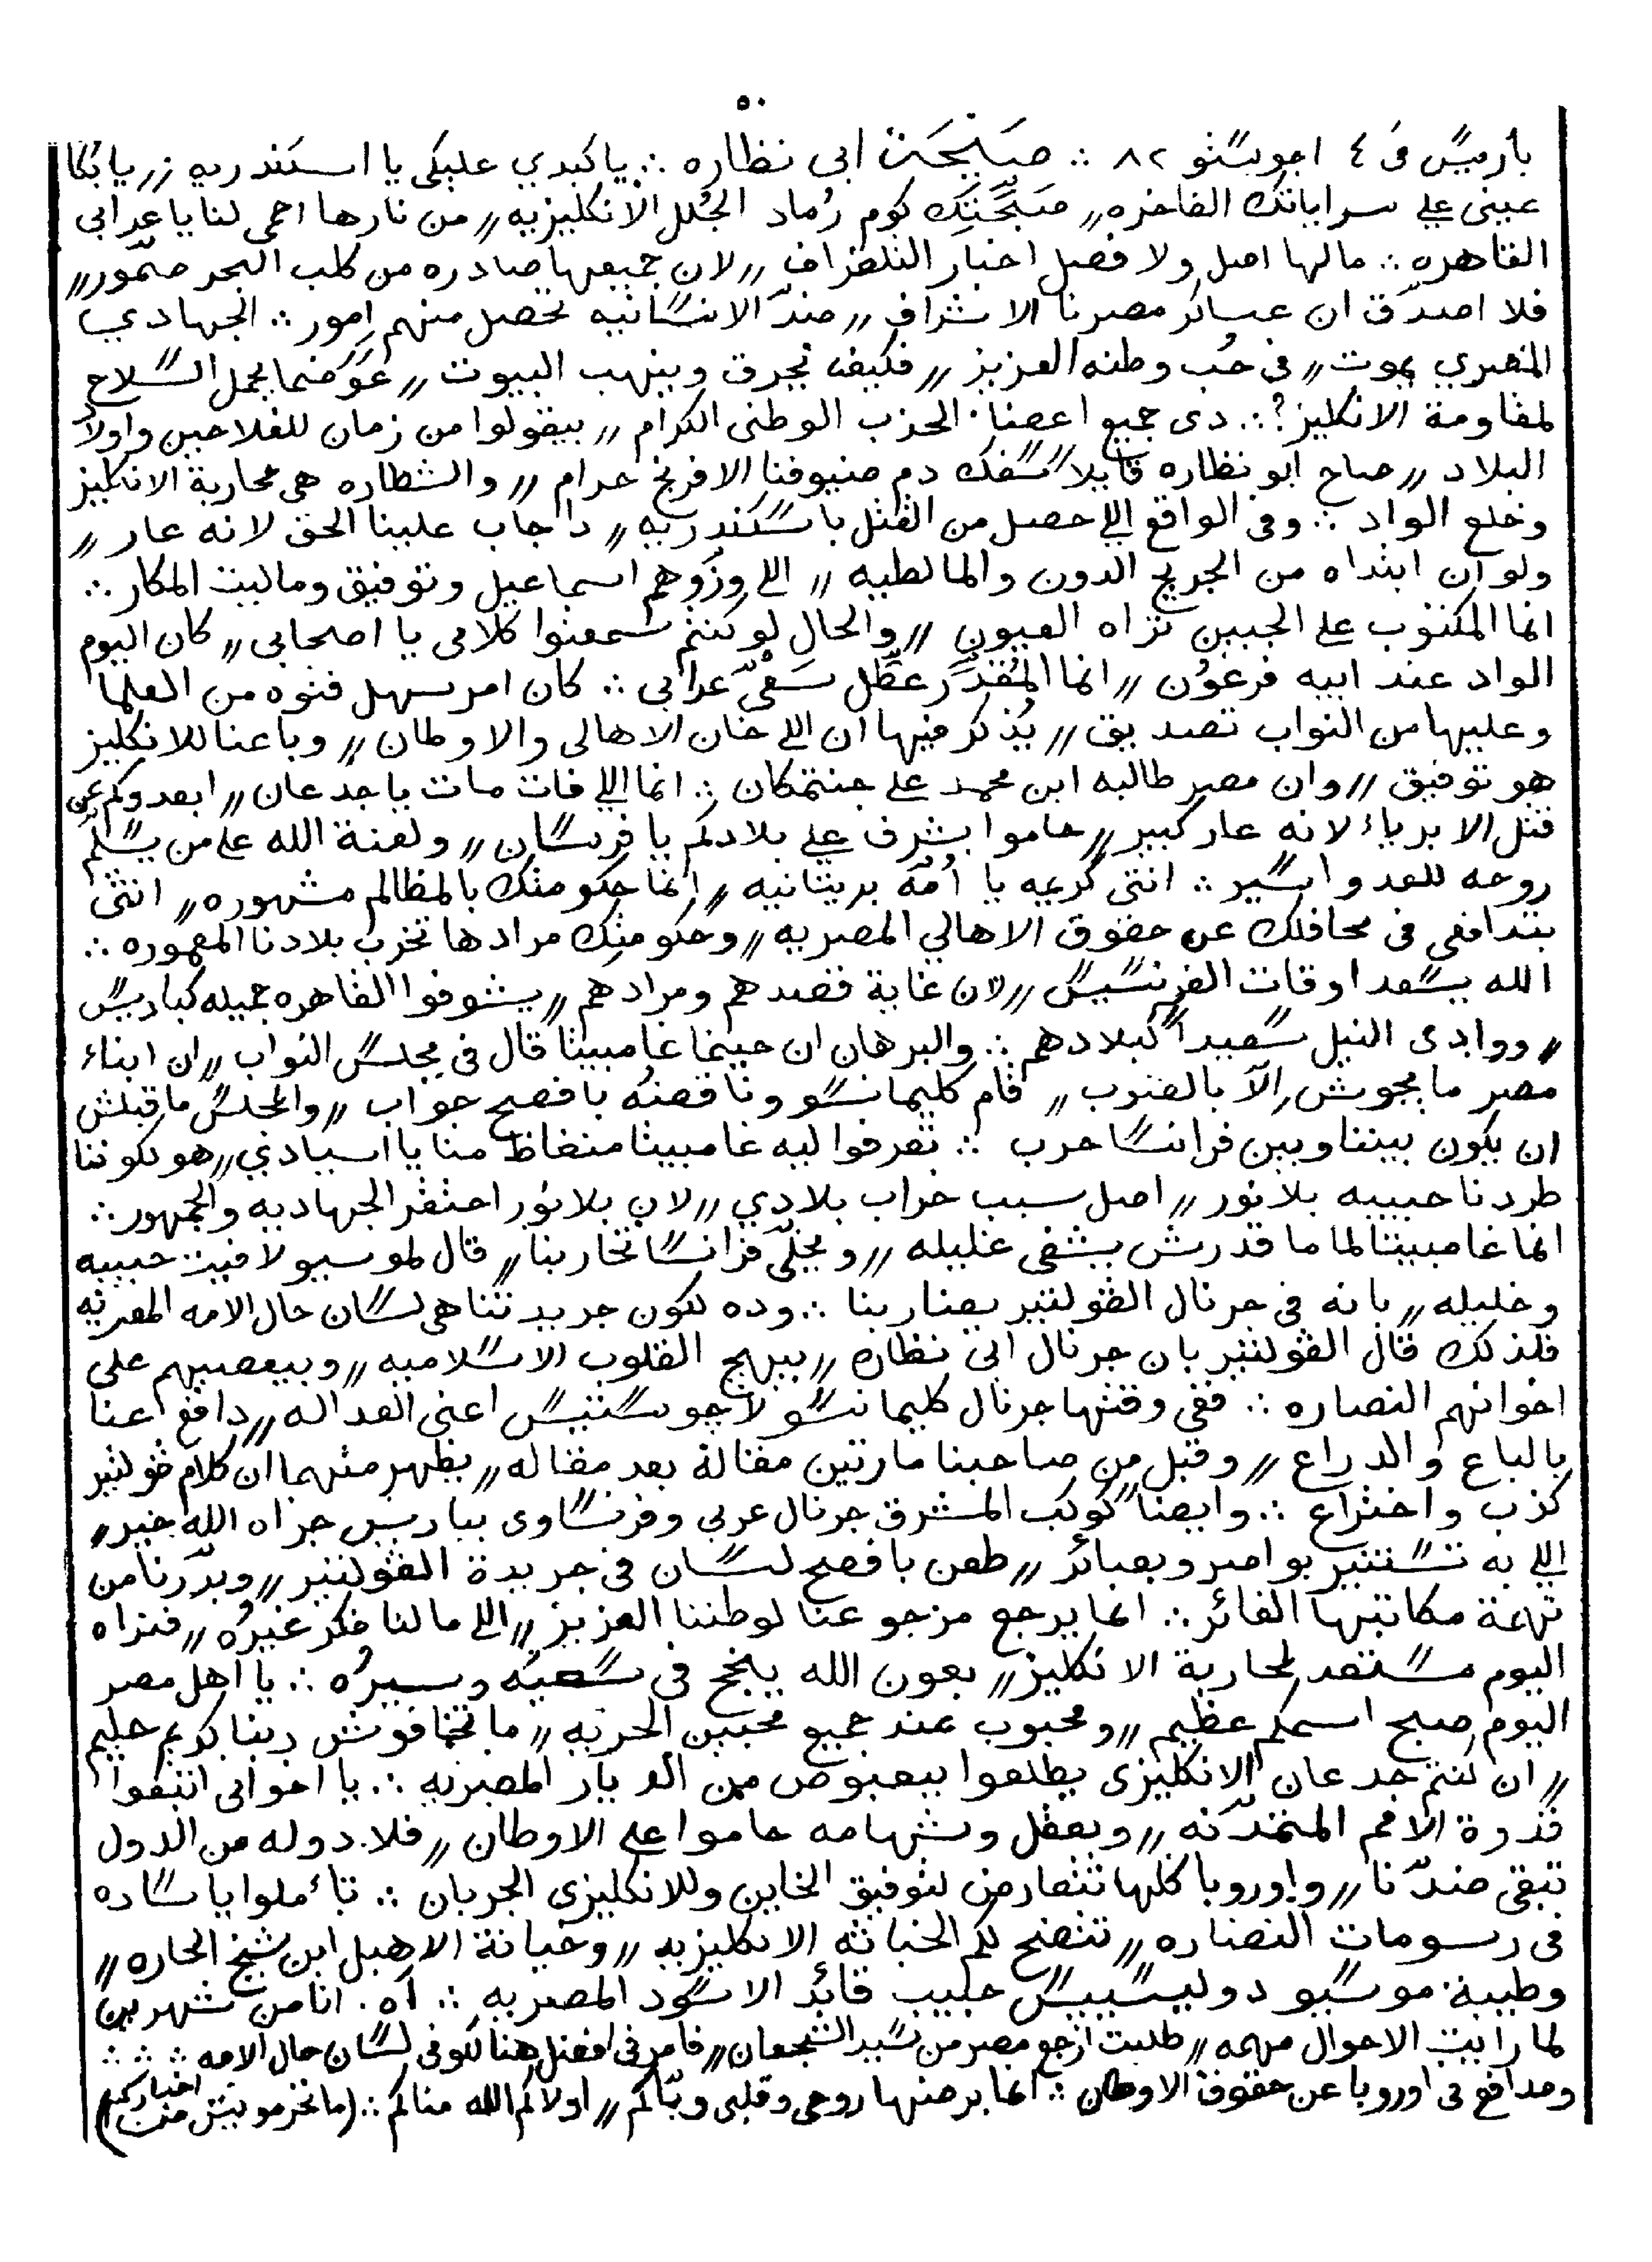 ٥٠
باريس فى ٤ اجويستو ٨٢ ∴ صيحة ابى نظاره ∴ يا كبدي عليكى يا اسكندريه // يا بكا
عينى على سراياتك الفاخره // صبحتك كوم رماد الجلل الانكليزيه // من نارها احمى لنا يا عرابى
القاهره ∴ مالها اصل ولا فصل اخبار التلغراف // لان جميعها صادره من كلب البحر صمور //
فلا اصدق ان عساكر مصرنا الاشراف // ضد الانسانيه تحصل منهم امور ∴ الجهادي
المصري يموت // فى حب وطنه العزيز // فكيف يحرق وينهب البيوت // عوضما يحمل السلاح
لمقاومة الانكليز؟ ∴ دى جميع اعضا الحزب الوطنى الكرام // بيقولوا من زمان للفلاحين واولاد
البلاد // صاح ابو نظاره قايلا سفك دم ضيوفنا الافرنج حرام // والشطاره هى محاربة الانكليز
وخلع الواد ∴ وفى الواقع اللى حصل من القتل باسكندريه // دا جاب علينا الحق لانه عار //
ولو ان ابتداه من الجريج الدون والمالطيه // اللى وزوهم اسماعيل وتوفيق وماليت المكار ∴
انما المكتوب على الجبين تراه العيون // والحال لو كنتم سمعتوا كلامى يا اصحابى // كان اليوم
الواد عند ابيه فرعون // انما المقدر عطل سعى عرابى ∴ كان امر سهل فتوه من العلما
وعليها من النواب تصديق // يذكر فيها ان اللى خان الاهالى والاوطان // وباعنا للانكليز
هو توفيق // وان مصر طالبه ابن محمد على جنتمكان ∴ انما اللى فات مات يا جدعان // ابعدوكم عن
قتل الابرياء لانه عار كبير // حاموا بشرف على بلادكم يا فرسان // ولعنة الله على من يسلم
روحه للعدو اسير ∴ انتى كريمه يا امه بريتانيه // انما حكومتك بالمظالم مشهوره // انتى
بتدافعى فى محافلك عن حقوق الاهالي المصريه // وحكومتك مرادها تخرب بلادنا المعموره ∴
الله يسعد اوقات الفرنسيس // لان غاية قصدهم ومرادهم // يشوفوا القاهره جميله كباريس
// ووادى النيل سعيدا كبلادهم ∴ والبرهان ان حينما غامبيتا قال فى مجلس النواب // ان ابناء
مصر ما يجوش الا بالضرب // قام كليمانسو وناقضه بافصح جواب // والمجلس ما قبلش
ان يكون بيننا وبين فرانسا حرب ∴ تعرفوا ليه غامبيتا منغاظ منا يا اسيادي // هو لكوننا
طردنا حبيبه بلانور // اصل سبب خراب بلادي // لان بلانور احتقر الجهاديه والجمهور ∴
انما غامبيتا لما ما قدرش يشفى غليله // ويخلى فرانسا تحاربنا // قال لموسيو لافيت حبيبه
وخليله // بانه فى جرنال الڤولتير يضاربنا ∴ وده لكون جريدتنا هى لسان حال الامه المصريه
فلذلك قال الڤولتير بان جرنال ابى نظاره // بيهيج القلوب الاسلاميه // وبيعصيهم على
اخوانهم النصاره ∴ ففى وقتها جرنال كليمانسو لاجوستيس اعنى العداله // دافع عنا
بالباع والدراع // وقبل من صاحبنا مارتين مقالة بعد مقاله // يظهر منهما ان كلام ڤولتير
كزب واختراع ∴ وايضا كوكب المشرق جرنال عربى وفرنساوى بباريس جزاه الله خير //
اللى به تستنير بواصر وبصائر // طعن بافصح لسان فى جريدة الڤولتير // وبررنا من
تهمة مكاتبها الفائر ∴ انما يرجع مرجوعنا لوطننا العزيز // اللى مالنا فكر غيره // فنراه
اليوم مستعد لمحاربة الانكليز // بعون الله ينجح فى سعيه وسيره ∴ يا اهل مصر
اليوم صبح اسمكم عظيم // ومحبوب عند جميع محبين الحريه // ما تخافوش ربنا كريم حليم
// ان كنتم جدعان الانكليزى يطلعوا بيعبوص من الديار المصريه ∴ يا اخوانى اتبعوا
قدوة الامم المتمدنه // وبعقل وشهامه حاموا على الاوطان // فلا دوله من الدول
تبقى ضدنا // واوروبا كلها تتعارض لتوفيق الخاين وللانكليزى الجربان ∴ تأملوا يا ساده
فى رسومات النضاره // تتضح لكم الخباثه الانكليزيه // وخيانة الاهبل ابن شيخ الحاره //
وطيبة موسيو دوليسيبس حبيب قائد الاسود المصريه ∴ آه انا من شهرين
لما رايت الاحوال مهمه // طلبت ارجع مصر من سيد الشجعان // فامرنى افضل هنا لكونى لسان حال الامه ∴ ∴ ∴
ومدافع فى اوروبا عن حقوق الاوطان ∴ انما برضها روحى وقلبى وياكم // اولاكم الله مناكم ∴ (ما تحرمونيش من اخباركم)